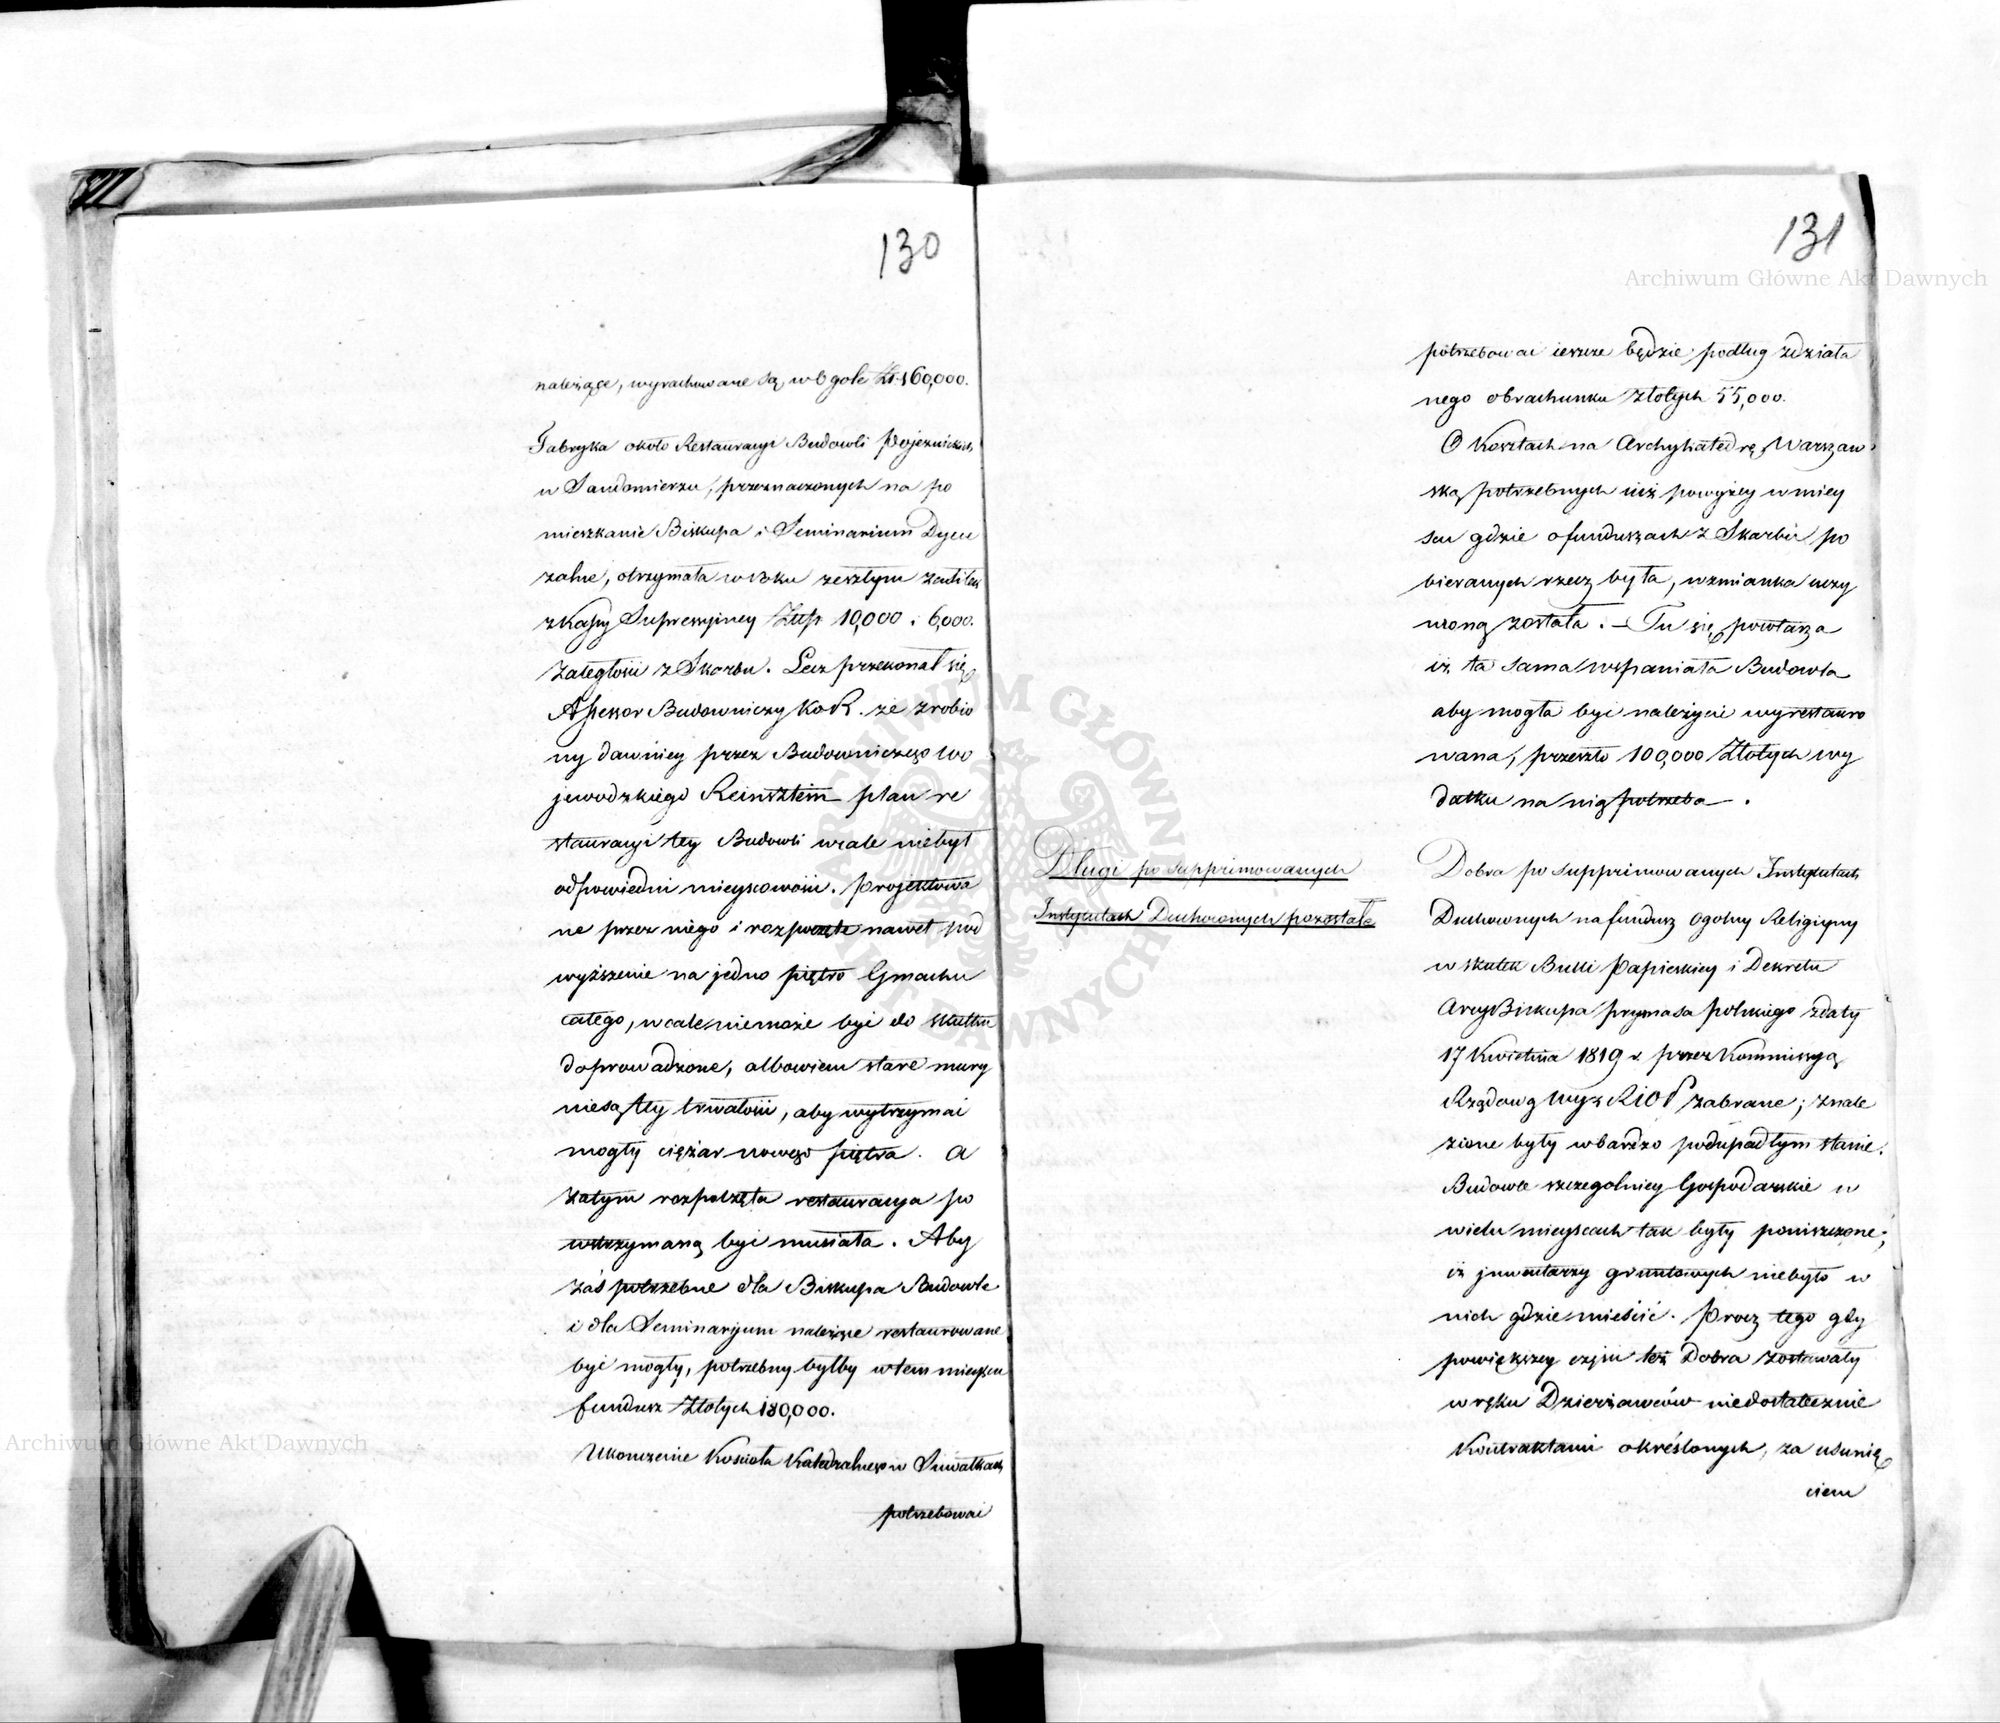 130
należące, wyrachowane są wogole Zł. 160,000.
Fabryka około Restauracyi Budowli Pojezuickich
w Sandomierzu, przeznaczonych na po
mieszkanie Biskupa i Seminarium Dyecе
zalne, otrzymała w roku zeszłym zasiłek
z Kassy Supressyiney Złłp 10,000. i 6,000.
zaległości z Skarbu. Lecz przekonał się
Assessor Budowniczy KoR. że zrobio
ny dawniey przez Budowniczego Wo
jewodzkiego Reinsztein plan re
stauracyi tey Budowli wcale niebył
odpowiedni mieyscowości. Projektowa
ne przez niego i rozpoczęte nawet pod
wyższenie na jedno piętro Gmachu
całego, wcale niemoże być do skutku
doprowadzone, albowiem stare mury
niesą tey trwałości, aby wytrzymać
mogły ciężar nowego piętra. A
zatym rozpoczęta restauracya po
wstrzymaną być musiała. Aby
zaś potrzebne dla Biskupa Budowle
i dla Seminaryum należycie restaurowane
być mogły, potrzebny byłby w tem mieyscu
fundusz Złotych 180,000.
Ukończenie Kościoła Katedralnego w Suwałkach
potrzebować
131
potrzebować ieszcze będzie podług zdziała
nego obrachunku Złotych 55,000.
O Kosztach na Archykatedrę Warszaw
ską potrzebnych iuż powyżey w miey
scu gdzie o funduszach z Skarbu po
bieranych rzecz była, wzmianka uczy
nioną została. — Tu się powtarza
iż ta sama wspaniała Budowla
aby mogła być należycie wyrestauro
wana, przeszło 100,000 Złotych wy
datku na nią potrzeba —.
Długi po supprimowanych
Instytutach Duchownych pozostałe
Dobra po supprimowanych Instytutach
Duchownych na fundusz ogolny Religiyny
w skutek Bulli Papieskiey i Dekretu
ArcyBiskupa prymasa polskiego z daty
17 Kwietnia 1819 r. przez Kommissyą
Rządową Wyz RiOP zabrane; znale
zione były w bardzo podupadłym stanie.
Budowle szczegolniey Gospodarskie w
wielu mieyscach tak były poniszczone;
iż jnwentarzy gruntowych niebyło w
nich gdzie mieścić. Procz tego gdy
powiększey części też Dobra zostawały
w ręku Dzierżawców niedostatecznie
Kontraktami określonych, za usunię
ciem